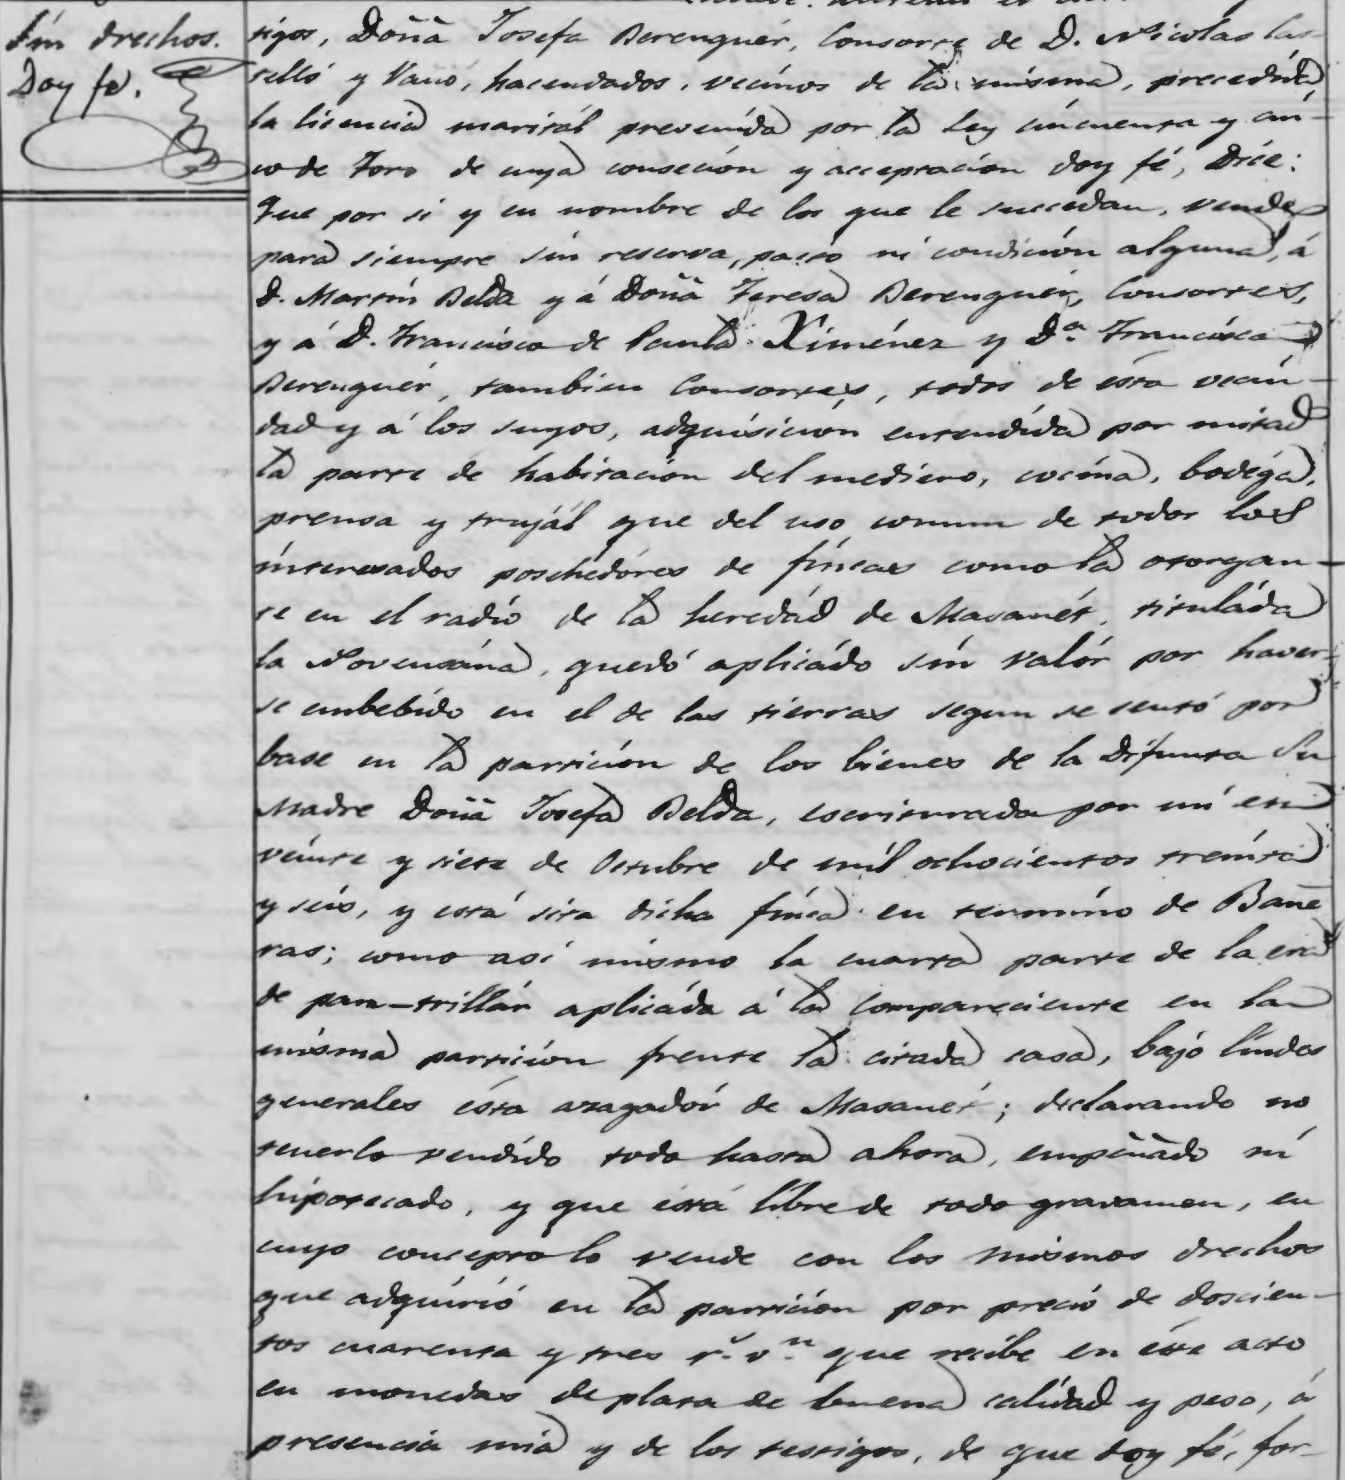 Sin drechos.
Doy fe.
tigos, Doña Josefa Berenguér, Consorte de D. Nicolas Cas-
telló y Vañó, hacendados, vecinos de la misma, precedida
la licencia maritál prevenida por la Ley cincuenta y cin-
co de Toro de cuya conseción y acceptación doy fé, Dice:
Que por si y en nombre de los que le succedan, vende
para siempre sin reserva, pacto ni condición alguna, á
D. Martín Belda y á Doña Teresa Berenguér, Consortes,
y á D. Francisco de Paula Ximénez y D.ª Francisca
Berenguér, tambien Consortes, todos de ésta vecin-
dad y á los suyos, adquisición entendída por mitad
la parte de habitacion del mediero, cocina, bodéga,
prensa y trujál que del uso comun de todos los
interesados poschedóres de fincas como la otorgan-
te en el radio de la heredád de Masanét, tituláda
la Novensána, quedó aplicádo sin valór por haver-
se embebído en el de las tierras segun se sentó por
base en la partición de los bienes de la Difunta Su
Madre Doña Josefa Belda, escriturada por mí en
veinte y siete de Octubre de mil ochocientos treinta
y seis, y está sita dicha finca en termíno de Bañe
ras; como asi mismo la cuarta parte de la era
de pan-trillár aplicáda á la compareciente en la
misma partición frente la citada casa, bajo líndes
generales ésta azagadór de Masanét; declarando no
tenerlo vendído todo hasta ahora, empeñádo ni
hipotecado, y que está libre de todo gravamen, en
cuyo concepto lo vende con los mismos drechos
que adquirió en la partición por precio de doscien-
tos cuarenta y tres r.s v.n que recibe en éste acto
en monedas de plata de buena calidad y peso, á
presencia mia y de los testigos, de que doy fé, for-